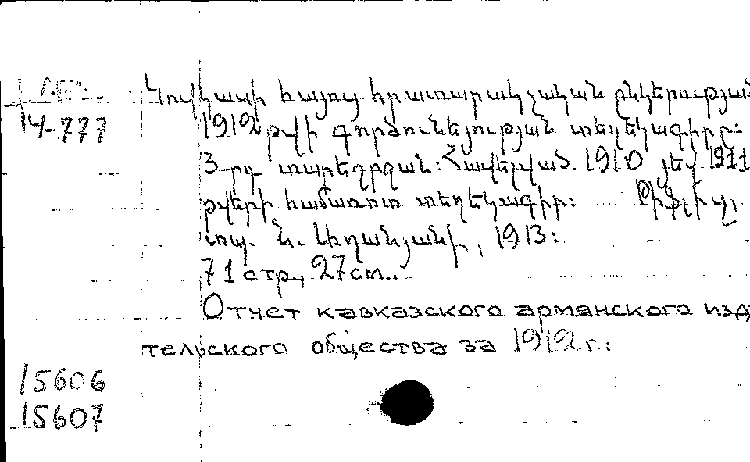 Կովկասի հայոց հրատարակչական ընկերության
14-777
1912 թվի գործունեության տեղեկագիր:
3-րդ տարեշրջան: Հավելված 1910 յեվ 1911
թվերի համառոտ տեղեկագիր: Թիֆլիս,
տպ. Ն. Աղանյանի, 1913:
71 стр., 27 см..
Отчет кавказского армянского изда
тельского общества за 1912 г.:
15606
15607